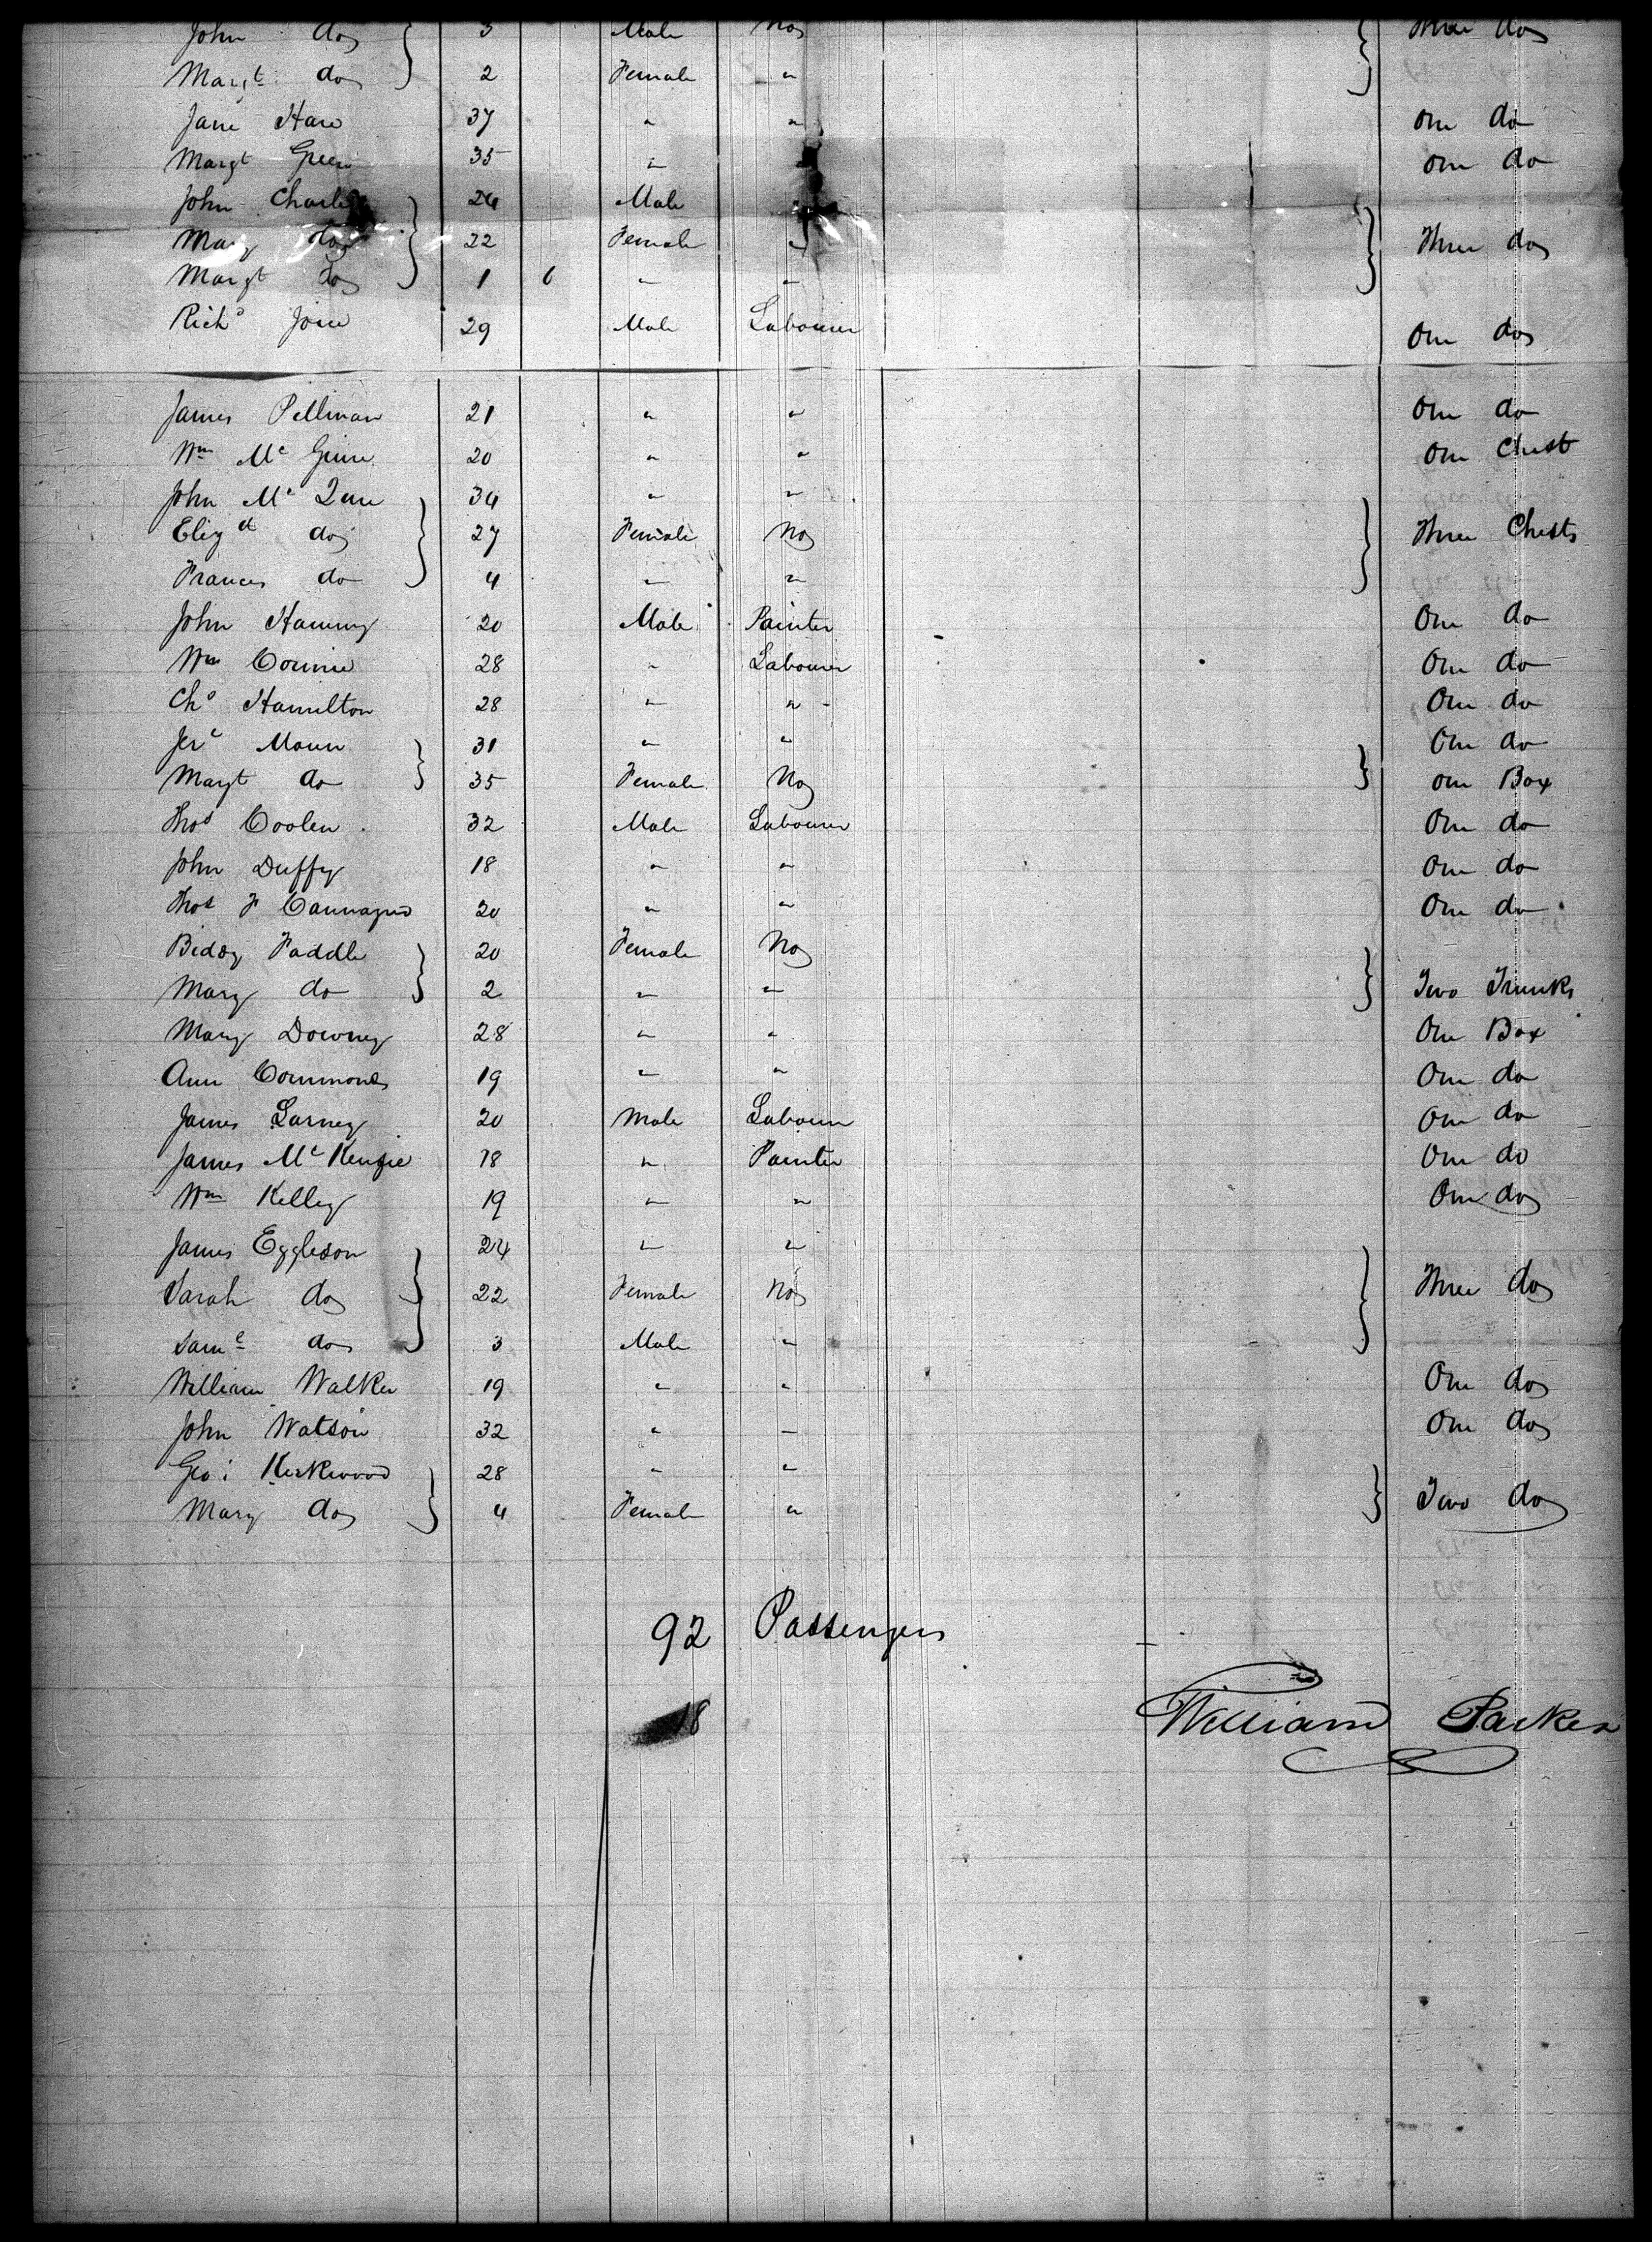 John do 3 Male No Three do
Margt do 2 Female "
Jane Hare 37 " " One do
Margt Green 35 " One do
John Charles 24 Male
Mary do 22 Female " Three do
Margt do 1 6 " "
Richd Joice 29 Male Labourer One do
James Pellman 21 " " One do
Wm Mc 20 " " One Chest
John Mc 34 " "
Elizth do 27 Female No Three Chests
Frances do 4 " "
John 20 Male Painter One do
Wm 28 " Labourer One do
Chs Hamilton 28 " " One do
31 " " One do
Margt do 35 Female No One Box
Thos Coolen 32 Male Labourer One do
John Duffy 18 " " One do
Thos F 20 " " One do
Biddy Faddle 20 Female No
Mary do 2 " " Two Trunks
Mary Downey 28 " " One Box
Ann Commons 19 " " One do
James Larney 20 Male Labourer One do
James Mc Kenzie 18 " Painter One do
Wm Kelley 19 " " One do
James Eggleson 24 " "
Sarah do 22 Female No Three do
Saml do 3 Male "
William Walker 19 " " One do
John Watson 32 " " One do
Geo: Kirkwood 28 " "
Mary do 4 Female " Two do
92 Passengers
18
William Parker